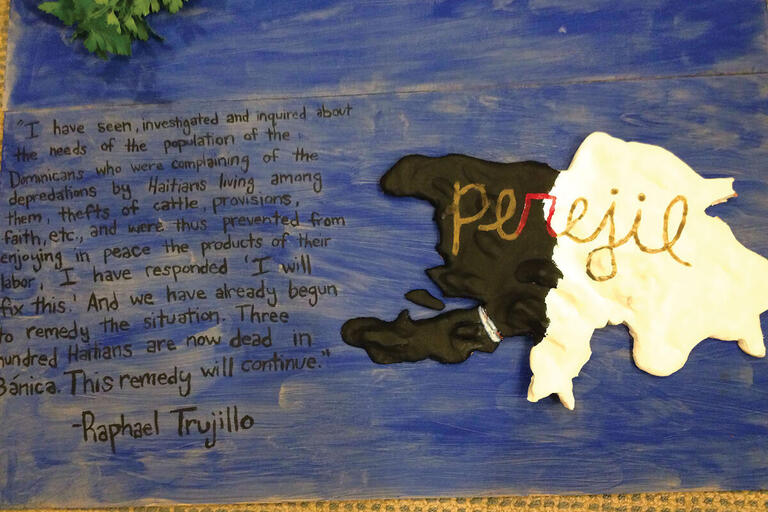 "I have seen, investigated and inquired about
the needs of the population of the
Dominicans who were complaining of the
depredations by Haitians living among
them, thefts of cattle, provisions,
faith, etc., and were thus prevented from
enjoying in peace the products of their
labor, I have responded 'I will
fix this.' And we have already begun
to remedy the situation. Three
hundred Haitians are now dead in
Bánica. This remedy will continue."
-Raphael Trujillo
perejil